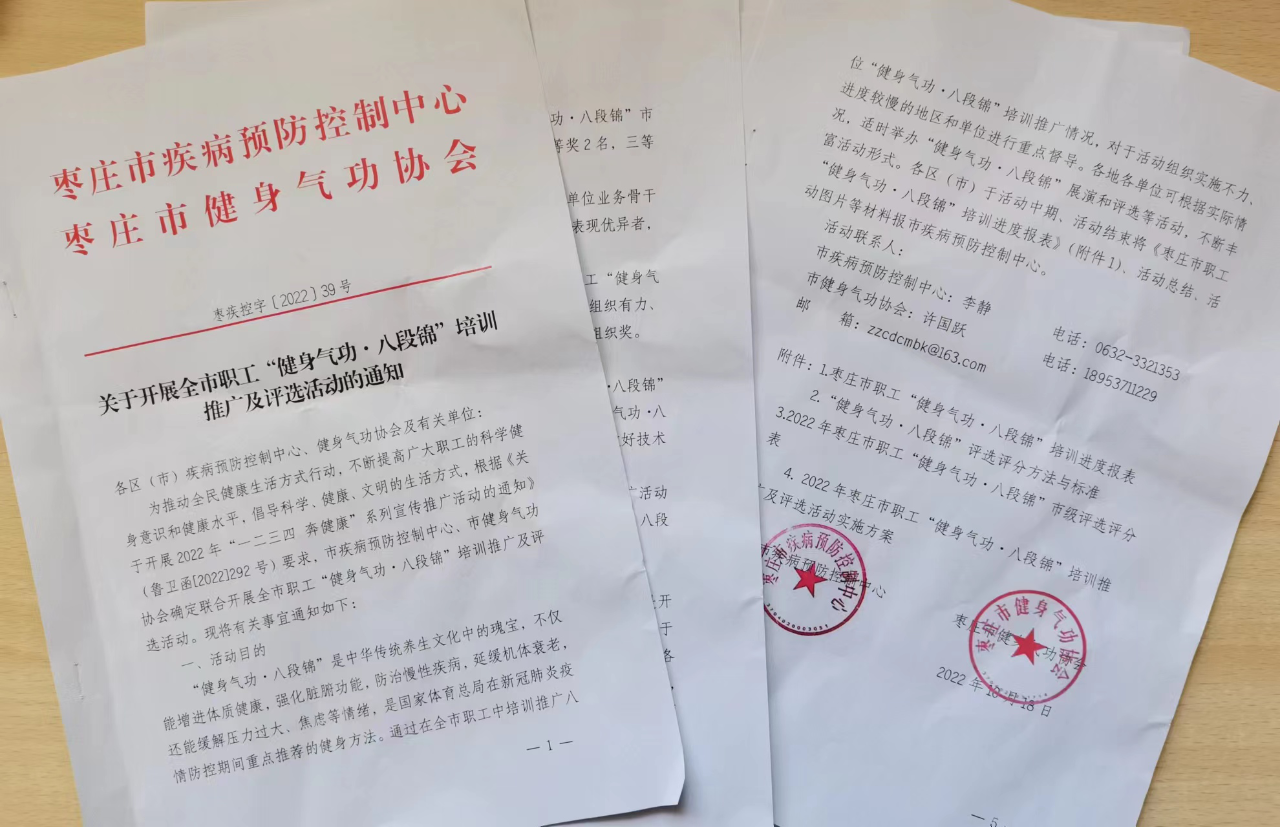 枣庄市疾病预防控制中心
枣庄市健身气功协会
枣疾控字〔2022〕39号
关于开展全市职工“健身气功·八段锦”培训
推广及评选活动的通知
各区（市）疾病预防控制中心、健身气功协会及有关单位：
为推动全民健康生活方式行动，不断提高广大职工的科学健
身意识和健康水平，倡导科学、健康、文明的生活方式，根据《关
于开展2022年“一二三四 奔健康”系列宣传推广活动的通知》
（鲁卫函[2022]292号）要求，市疾病预防控制中心、市健身气功
协会确定联合开展全市职工“健身气功·八段锦”培训推广及评
选活动。现将有关事宜通知如下：
一、活动目的
“健身气功·八段锦”是中华传统养生文化中的瑰宝，不仅
能增进体质健康，强化脏腑功能，防治慢性疾病，延缓机体衰老，
还能缓解压力过大、焦虑等情绪，是国家体育总局在新冠肺炎疫
情防控期间重点推荐的健身方法。通过在全市职工中培训推广八
—1—
功·八段锦”市
等奖2名，三等
单位业务骨干
表现优异者，
工“健身气
组织有力、
组织奖。
八段锦”
气功·八
好技术
活动
八段
开
于
各
位“健身气功·八段锦”培训推广情况，对于活动组织实施不力、
进度较慢的地区和单位进行重点督导。各地各单位可根据实际情
况，适时举办“健身气功·八段锦”展演和评选等活动，不断丰
富活动形式。各区（市）于活动中期、活动结束将《枣庄市职工
“健身气功·八段锦”培训进度报表》（附件1）、活动总结、活
动图片等材料报市疾病预防控制中心。
活动联系人：
市疾病预防控制中心：李静 电话：0632-3321353
市健身气功协会：许国跃 电话：18953711229
邮 箱：zzcdcmbk@163.com
附件：1.枣庄市职工“健身气功·八段锦”培训进度报表
2.“健身气功·八段锦”评选评分方法与标准
3.2022年枣庄市职工“健身气功·八段锦”市级评选评分
表
4. 2022年枣庄市职工“健身气功·八段锦”培训推
广及评选活动实施方案
市疾病预防控制中心
枣庄市疾病预防控制中心
枣庄市健身气功协会
枣庄市健身气功协会
2022年10月18日
—5